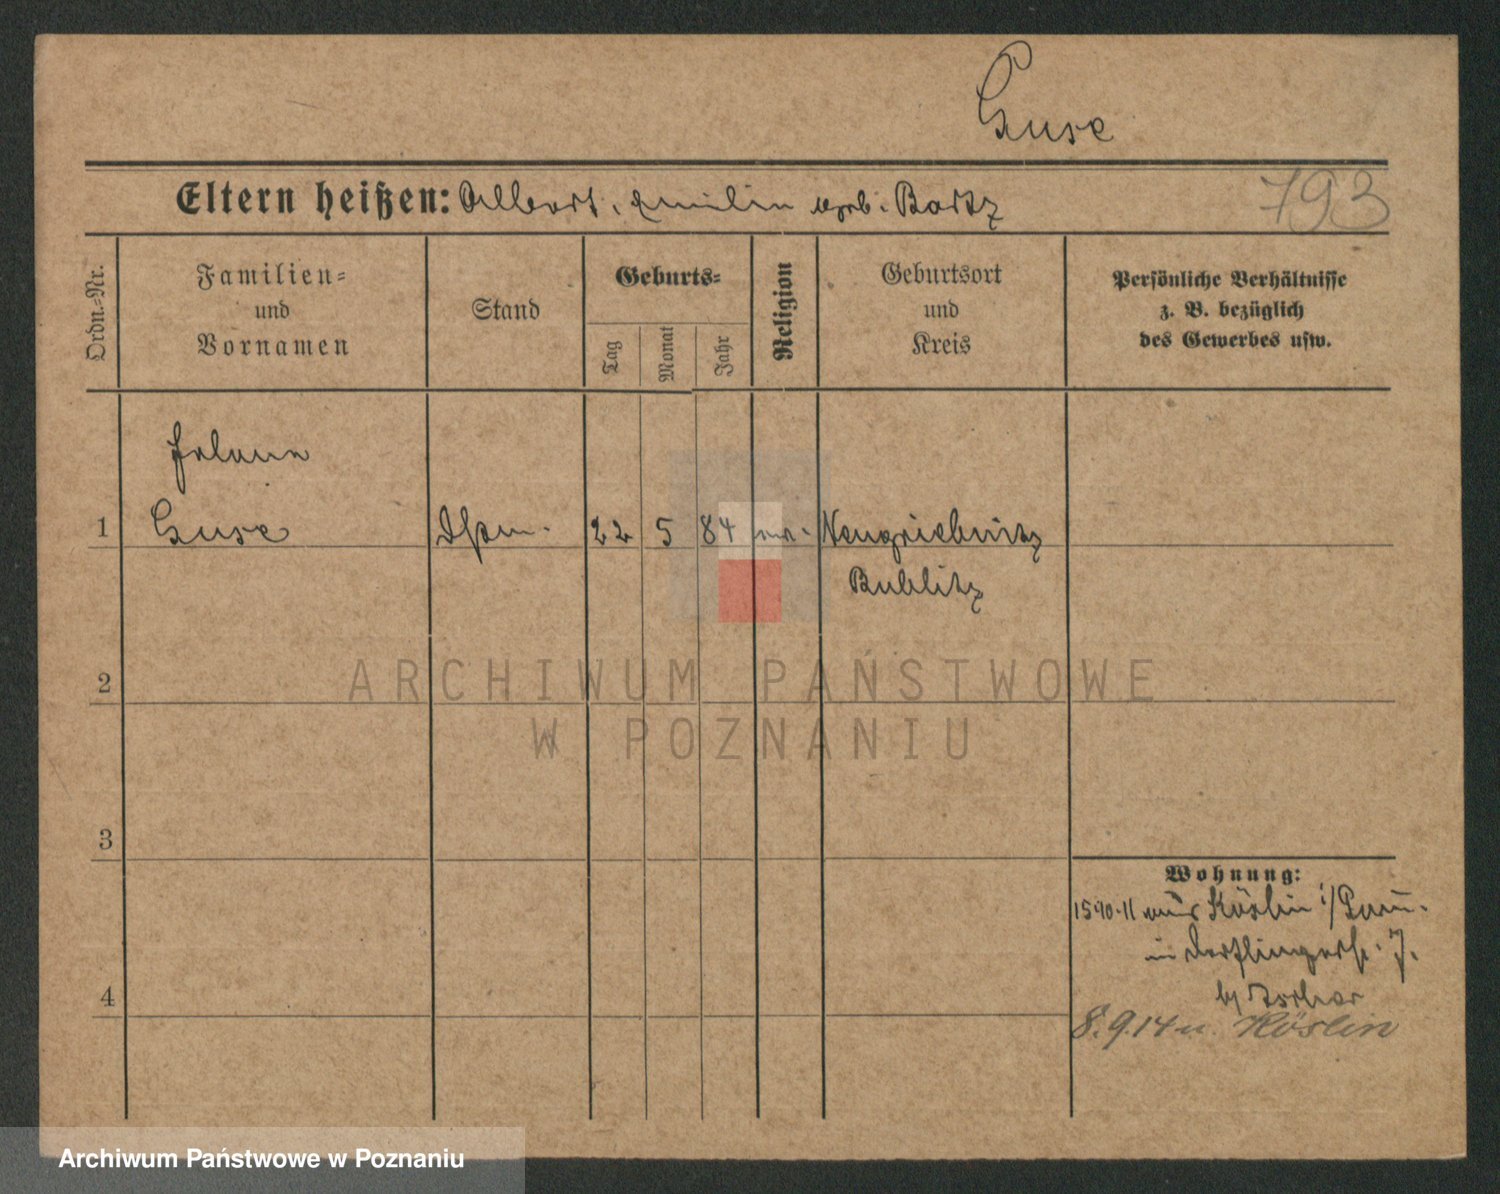 Guse
Eltern heißen: Albert, Emilie geb. Bartz
793
Ordn.-Nr.
Familien-
und
Vornamen
Stand
Geburts-
Tag
Monat
Jahr
Religion
Geburtsort
und
Kreis
Persönliche Verhältnisse
z. B. bezüglich
des Gewerbes usw.
Helene
1 Guse 22 5 84 ev. Neugriebnitz
Bublitz
2
ARCHIWUM PAŃSTWOWE
W POZNANIU
3
Wohnung:
15.10.11 aus Köslin i/Pom.
in Derfflingerstr. 7.
4
8.9.14 n. Köslin
Archiwum Państwowe w Poznaniu